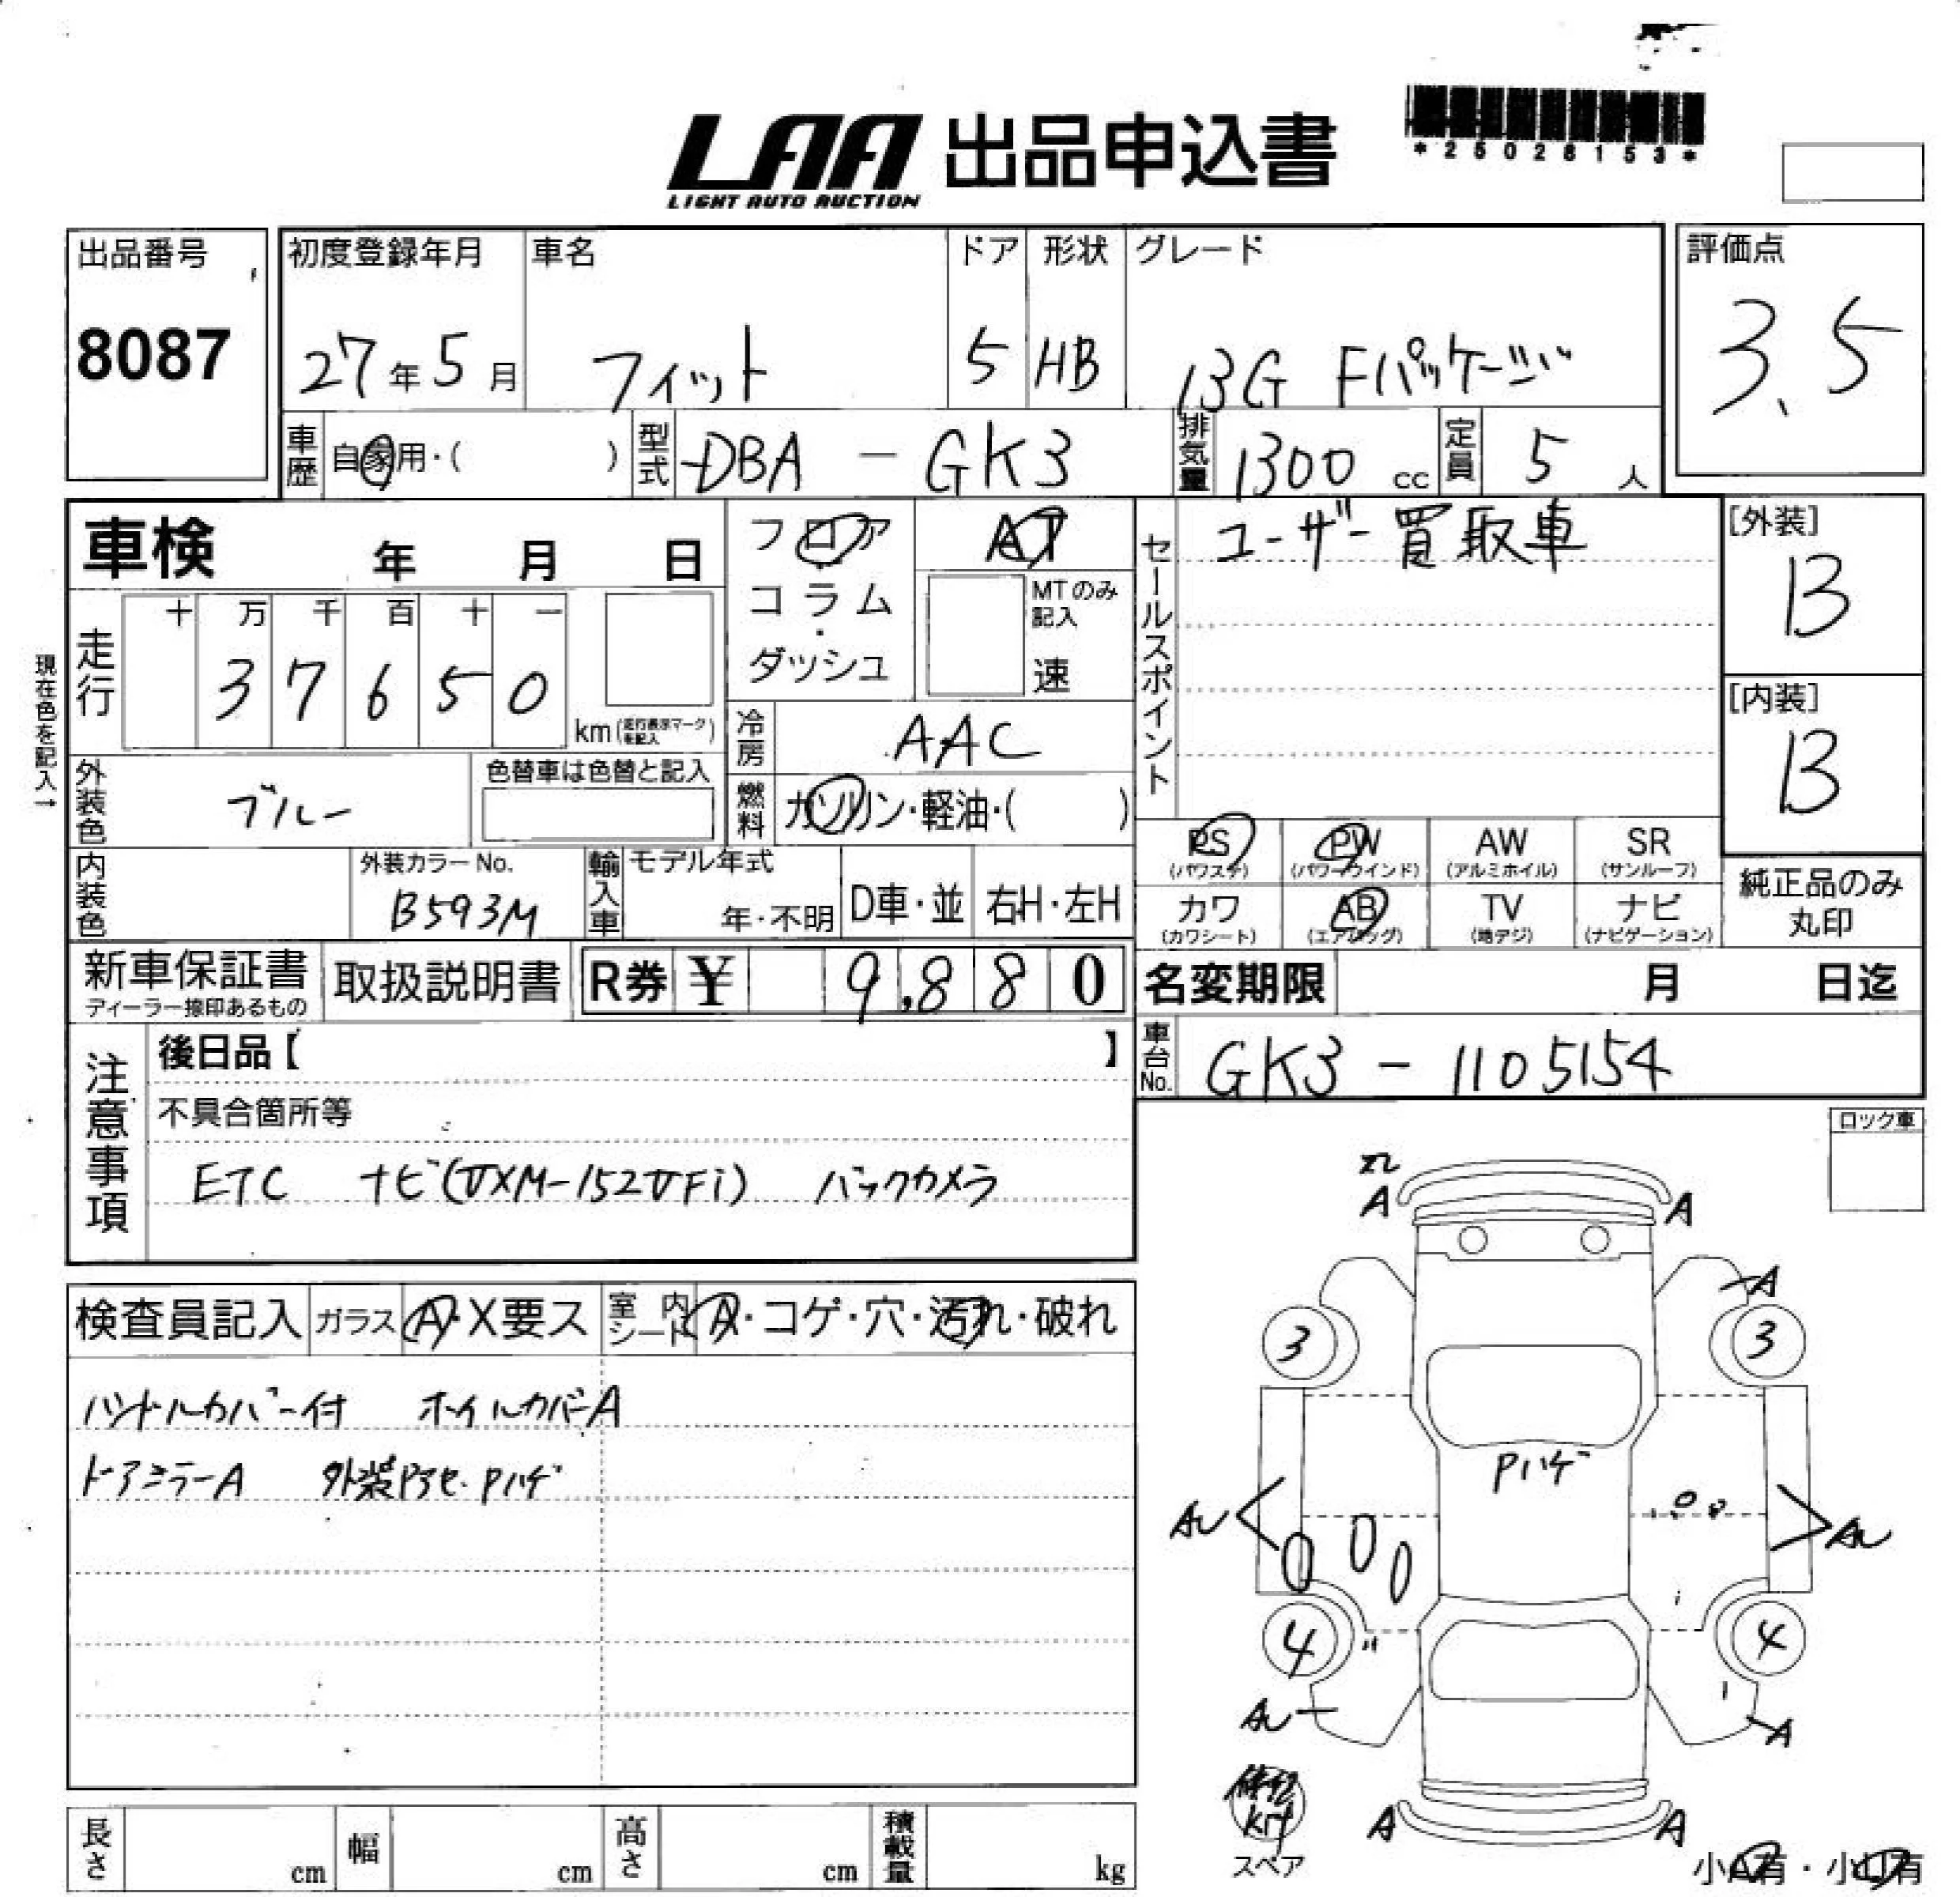 LAA 出品申込書
LIGHT AUTO AUCTION
*25028153*
出品番号
8087
初度登録年月
27年5月
車名
フィット
ドア
5
形状
HB
グレード
13G Fパッケージ
評価点
3.5
車歴
自家用・( )
型式
DBA - GK3
排気量
1300 cc
定員
5 人
車検 年 月 日
フロア
コラム
・
ダッシュ
AT
MTのみ記入
速
セールスポイント
ユーザー買取車
[外装]
B
[内装]
B
現在色を記入→
走行
十 万 千 百 十 一
3 7 6 5 0
km(走行表示マークを記入)
冷房
AAC
外装色
ブルー
色替車は色替と記入
燃料
ガソリン・軽油・( )
PS
(パワステ)
PW
(パワーウインド)
AW
(アルミホイル)
SR
(サンルーフ)
カワ
(カワシート)
AB
(エアバッグ)
TV
(地デジ)
ナビ
(ナビゲーション)
純正品のみ
丸印
内装色
外装カラーNo.
B593M
輸入車
モデル年式
年・不明
D車・並
右H・左H
新車保証書
ディーラー捺印あるもの
取扱説明書
R券 ¥ 9,880
名変期限 月 日迄
車台No.
GK3 - 1105154
注意事項
後日品【 】
不具合箇所等
ETC ナビ(VXM-152VFi) バックカメラ
ロック車
検査員記入
ガラス
A・X要ス
室内シート
A・コゲ・穴・汚れ・破れ
ハンドルカバー付 ホイルカバーA
ドアミラーA 外装Pアセ・Pハゲ
A
A
A
3
3
Pハゲ
4
4
A
A
A
スペア
小A有・小凹有
長さ cm
幅 cm
高さ cm
積載量 kg